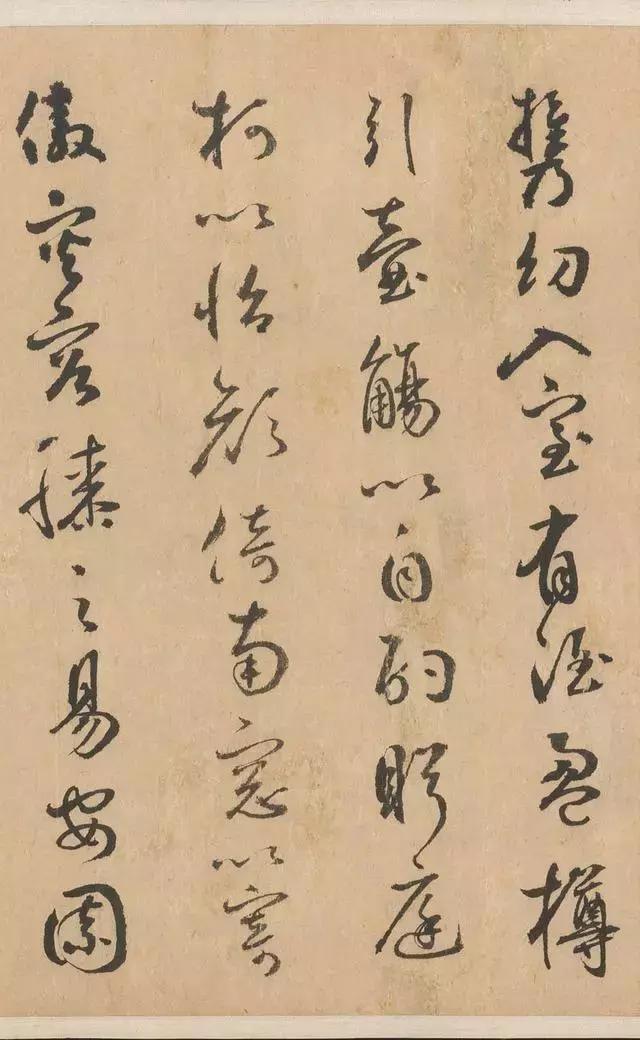 携幼入室有酒盈樽
引壺觴以自酌眄庭
柯以怡顔倚南窓以寄
傲審容膝之易安園